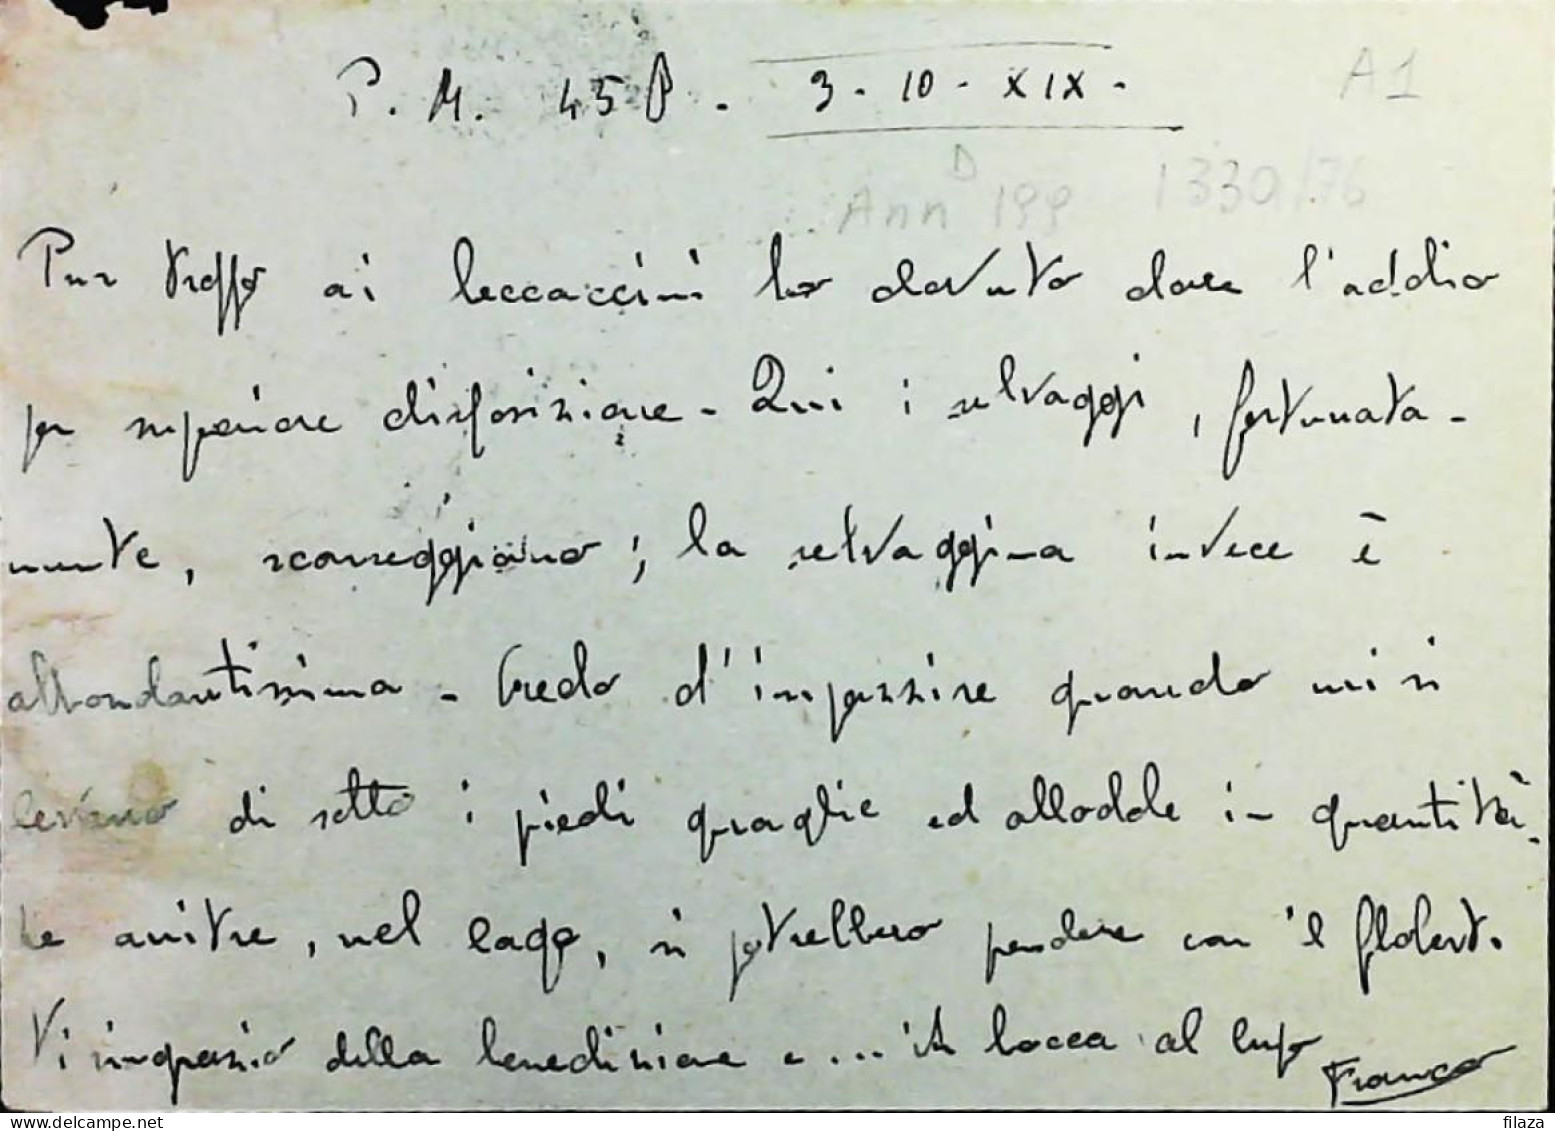 P. M. 45 P. 3 - 10 - XIX -
A1
Ann D 199 1330/76
Pur troppo ai beccaccini ho dovuto dare l'addio
per superiore disposizione - Qui i selvaggi, fortunata-
mente, scarseggiano; la selvaggina invece è
abbondantissima - Credo d'impazzire quando mi si
levano di sotto i piedi quaglie ed allodole in quantità.
Le anitre, nel lago, si potrebbero prendere con il flobert.
Vi ringrazio della benedizione e... in bocca al lupo
Franco
delcampe.net
filaza